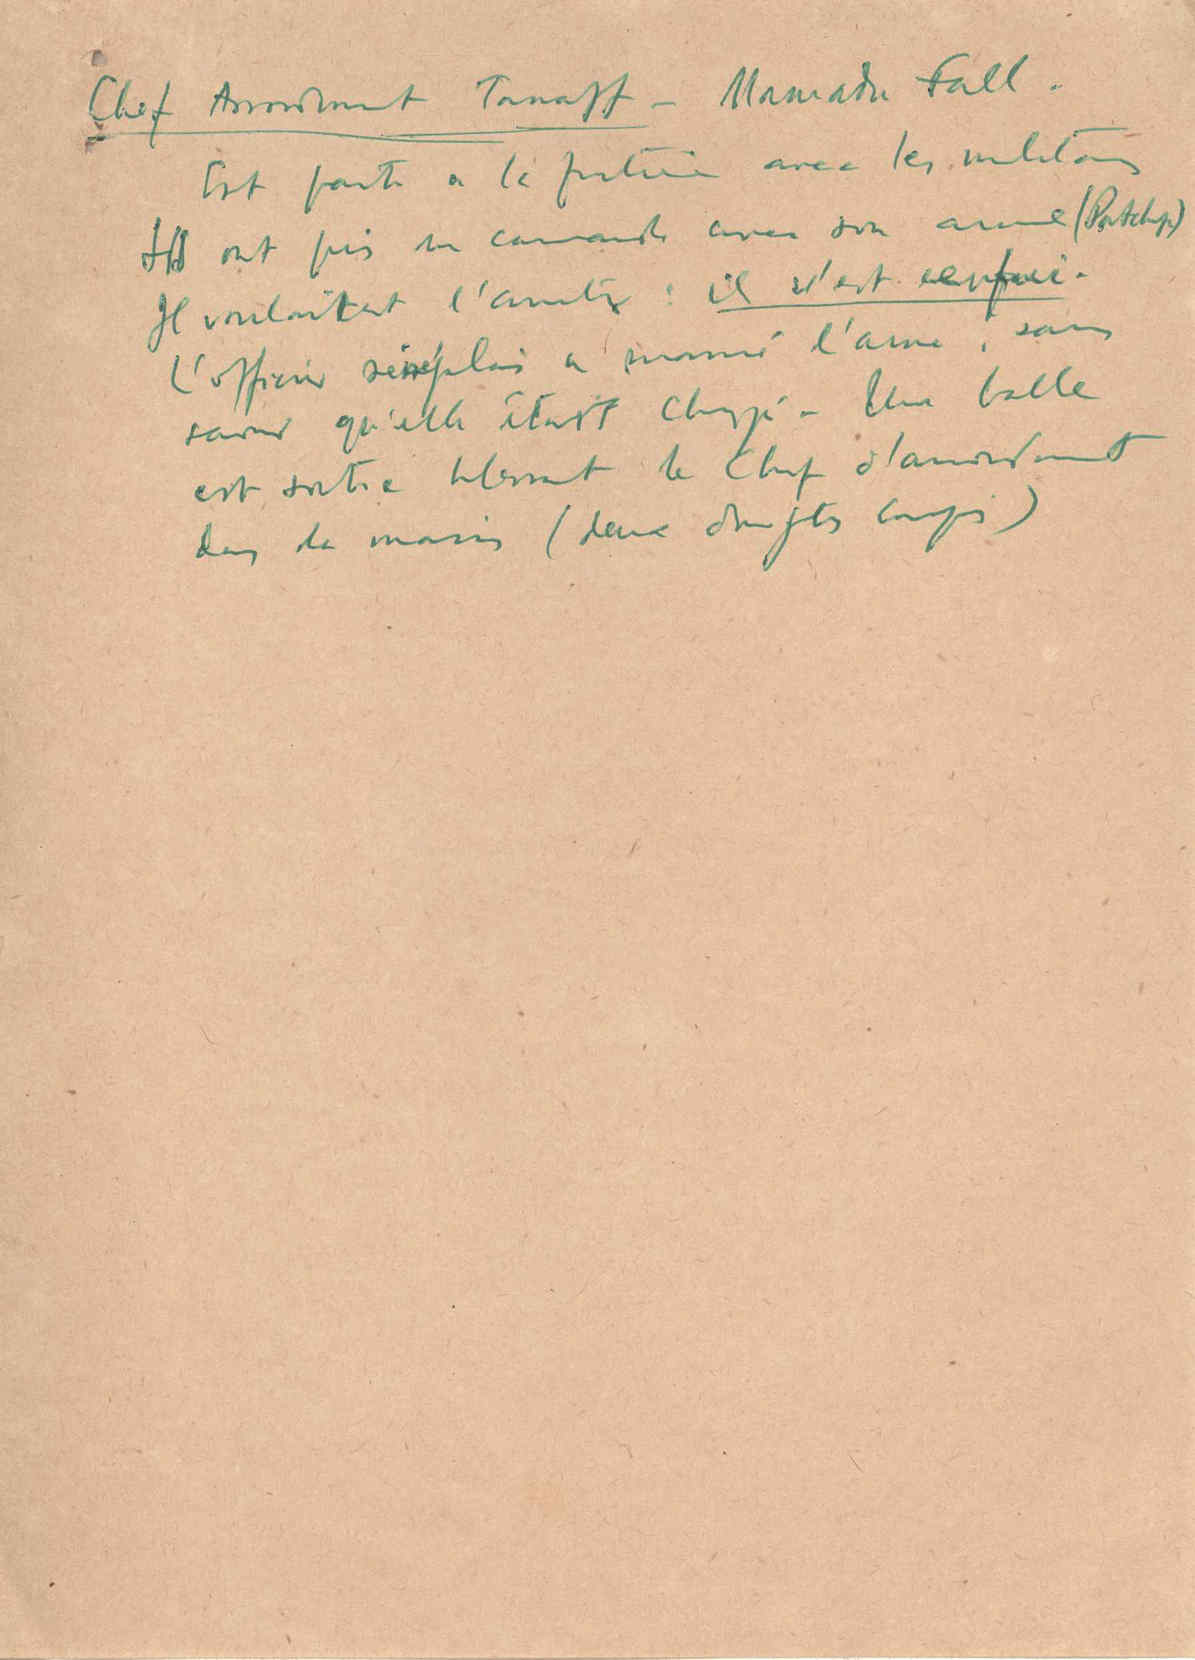 Chef Arrondiment Tanaff - Mamadu Fall.
Est parti a la frontière avec les militaires
Ils ont pris un camarade avec son arme (Patchep)
Il voulaitent l'arrêter : il s'est enfui.
L'officier sénégalais a manié l'arme, sans
savoir qu'elle était chargé - Une balle
est sortie blessant le Chef d'arrondiment
dans la main (deux doights coupés)